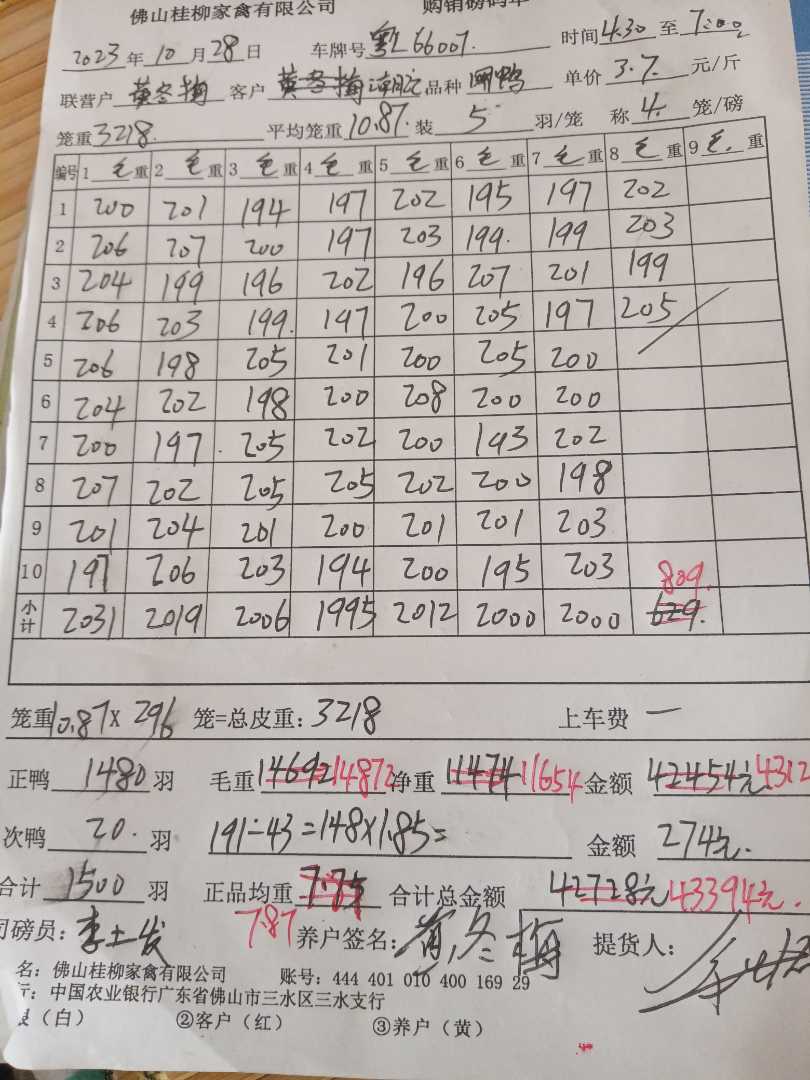 佛山桂柳家禽有限公司 购销磅码单
2023年10月28日 车牌号粤L66007. 时间4:30至7:00
联营户黄冬梅 客户 品种 单价3.7.元/斤
笼重3218. 平均笼重10.87.装5羽/笼 称4.笼/磅
编号 1毛重 2毛重 3毛重 4毛重 5毛重 6毛重 7毛重 8毛重 9毛.重
1 200 201 194 197 202 195 197 202
2 206 207 200 197 203 199. 199 203
3 204 199 196 202 196 207 201 199
4 206 203 199. 197 200 205 197 205
5 206 198 205 201 200 205 200
6 204 202 198 200 208 200 200
7 200 197. 205 202 200 193 202
8 207 202 205 205 202 200 198
9 201 204 201 200 201 201 203
10 197 206 203 194 200 195 203 809.
小计 2031 2019 2006 1995 2012 2000 2000 629.
笼重10.87x 296 笼=总皮重:3218 上车费 一
正鸭1480羽 毛重14692 14872 净重11474 11654 金额42454元 4312
次鸭20.羽 191÷43=148x1.85= 金额274元.
合计1500羽 正品均重7.75 合计总金额42728元43394元.
司磅员: 7.87 养户签名:黄冬梅 提货人:
名:佛山桂柳家禽有限公司 账号:444 401 010 400 169 29
行:中国农业银行广东省佛山市三水区三水支行
（白） ②客户（红） ③养户（黄）